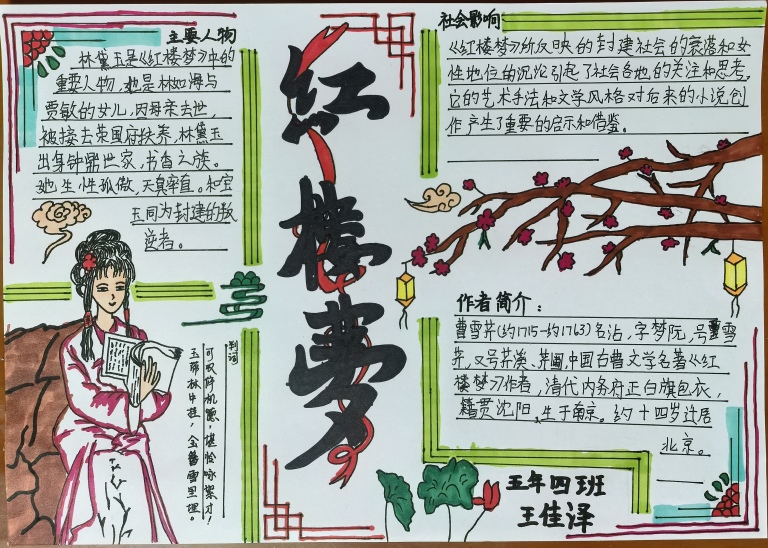 主要人物
林黛玉是《红楼梦》中的
重要人物,她是林如海与
贾敏的女儿,因母亲去世,
被接去荣国府扶养,林黛玉
出身钟鼎世家,书香之族。
她生性孤傲,天真率直。和宝
玉同为封建的叛
逆者。
判词
可叹停机德,堪怜咏絮才!
玉带林中挂,金簪雪里埋。
红楼梦
社会影响
《红楼梦》所反映的封建社会的衰落和女
性地位的沉沦引起了社会各地的关注和思考,
它的艺术手法和文学风格对后来的小说创
作产生了重要的启示和借鉴。
作者简介:
曹雪芹(约1715-约1763)名沾,字梦阮,号雪
芹,又号芹溪、芹圃,中国古曹文学名著《红
楼梦》作者,清代内务府正白旗包衣,
籍贯沈阳,生于南京。约十四岁迁居
北京。
五年四班
王佳泽